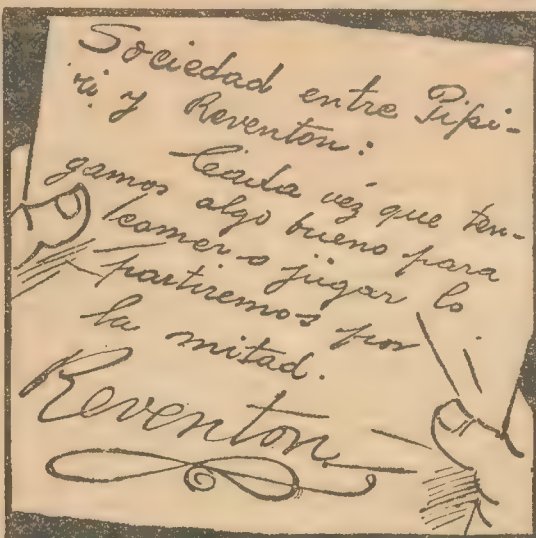 Sociedad entre Pipi-
ri y Reventon:
Cada véz que ten-
gamos algo bueno para
comer o júgar lo
partiremos por
la mitad.
Reventon